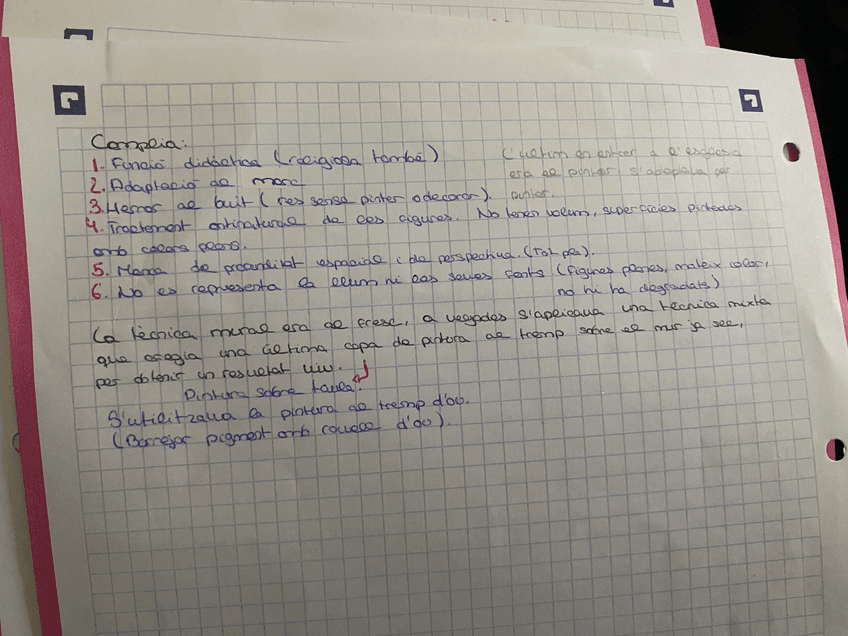 Complia:
1. Funció didàctica (religiosa també)
L'últim en entrar a l'església
era el pintor, s'adaptava per
pintar.
2. Adaptació al marc
3. Horror al buit (res sense pintar o decorar).
4. Tractament antinatural de les figures. No tenen volum, superfícies pintades
amb colors plans.
5. Manca de profunditat espacial i de perspectiva. (Tot pla).
6. No es representa la llum ni les seves fonts (figures planes, mateix color,
no hi ha degradats)
La tècnica mural era al fresc, a vegades s'aplicava una tècnica mixta
que afegia una última capa de pintura al tremp sobre el mur ja sec,
per obtenir un resultat viu.
Pintura sobre taula:
S'utilitzava la pintura al tremp d'ou.
(Barrejar pigment amb rovell d'ou).